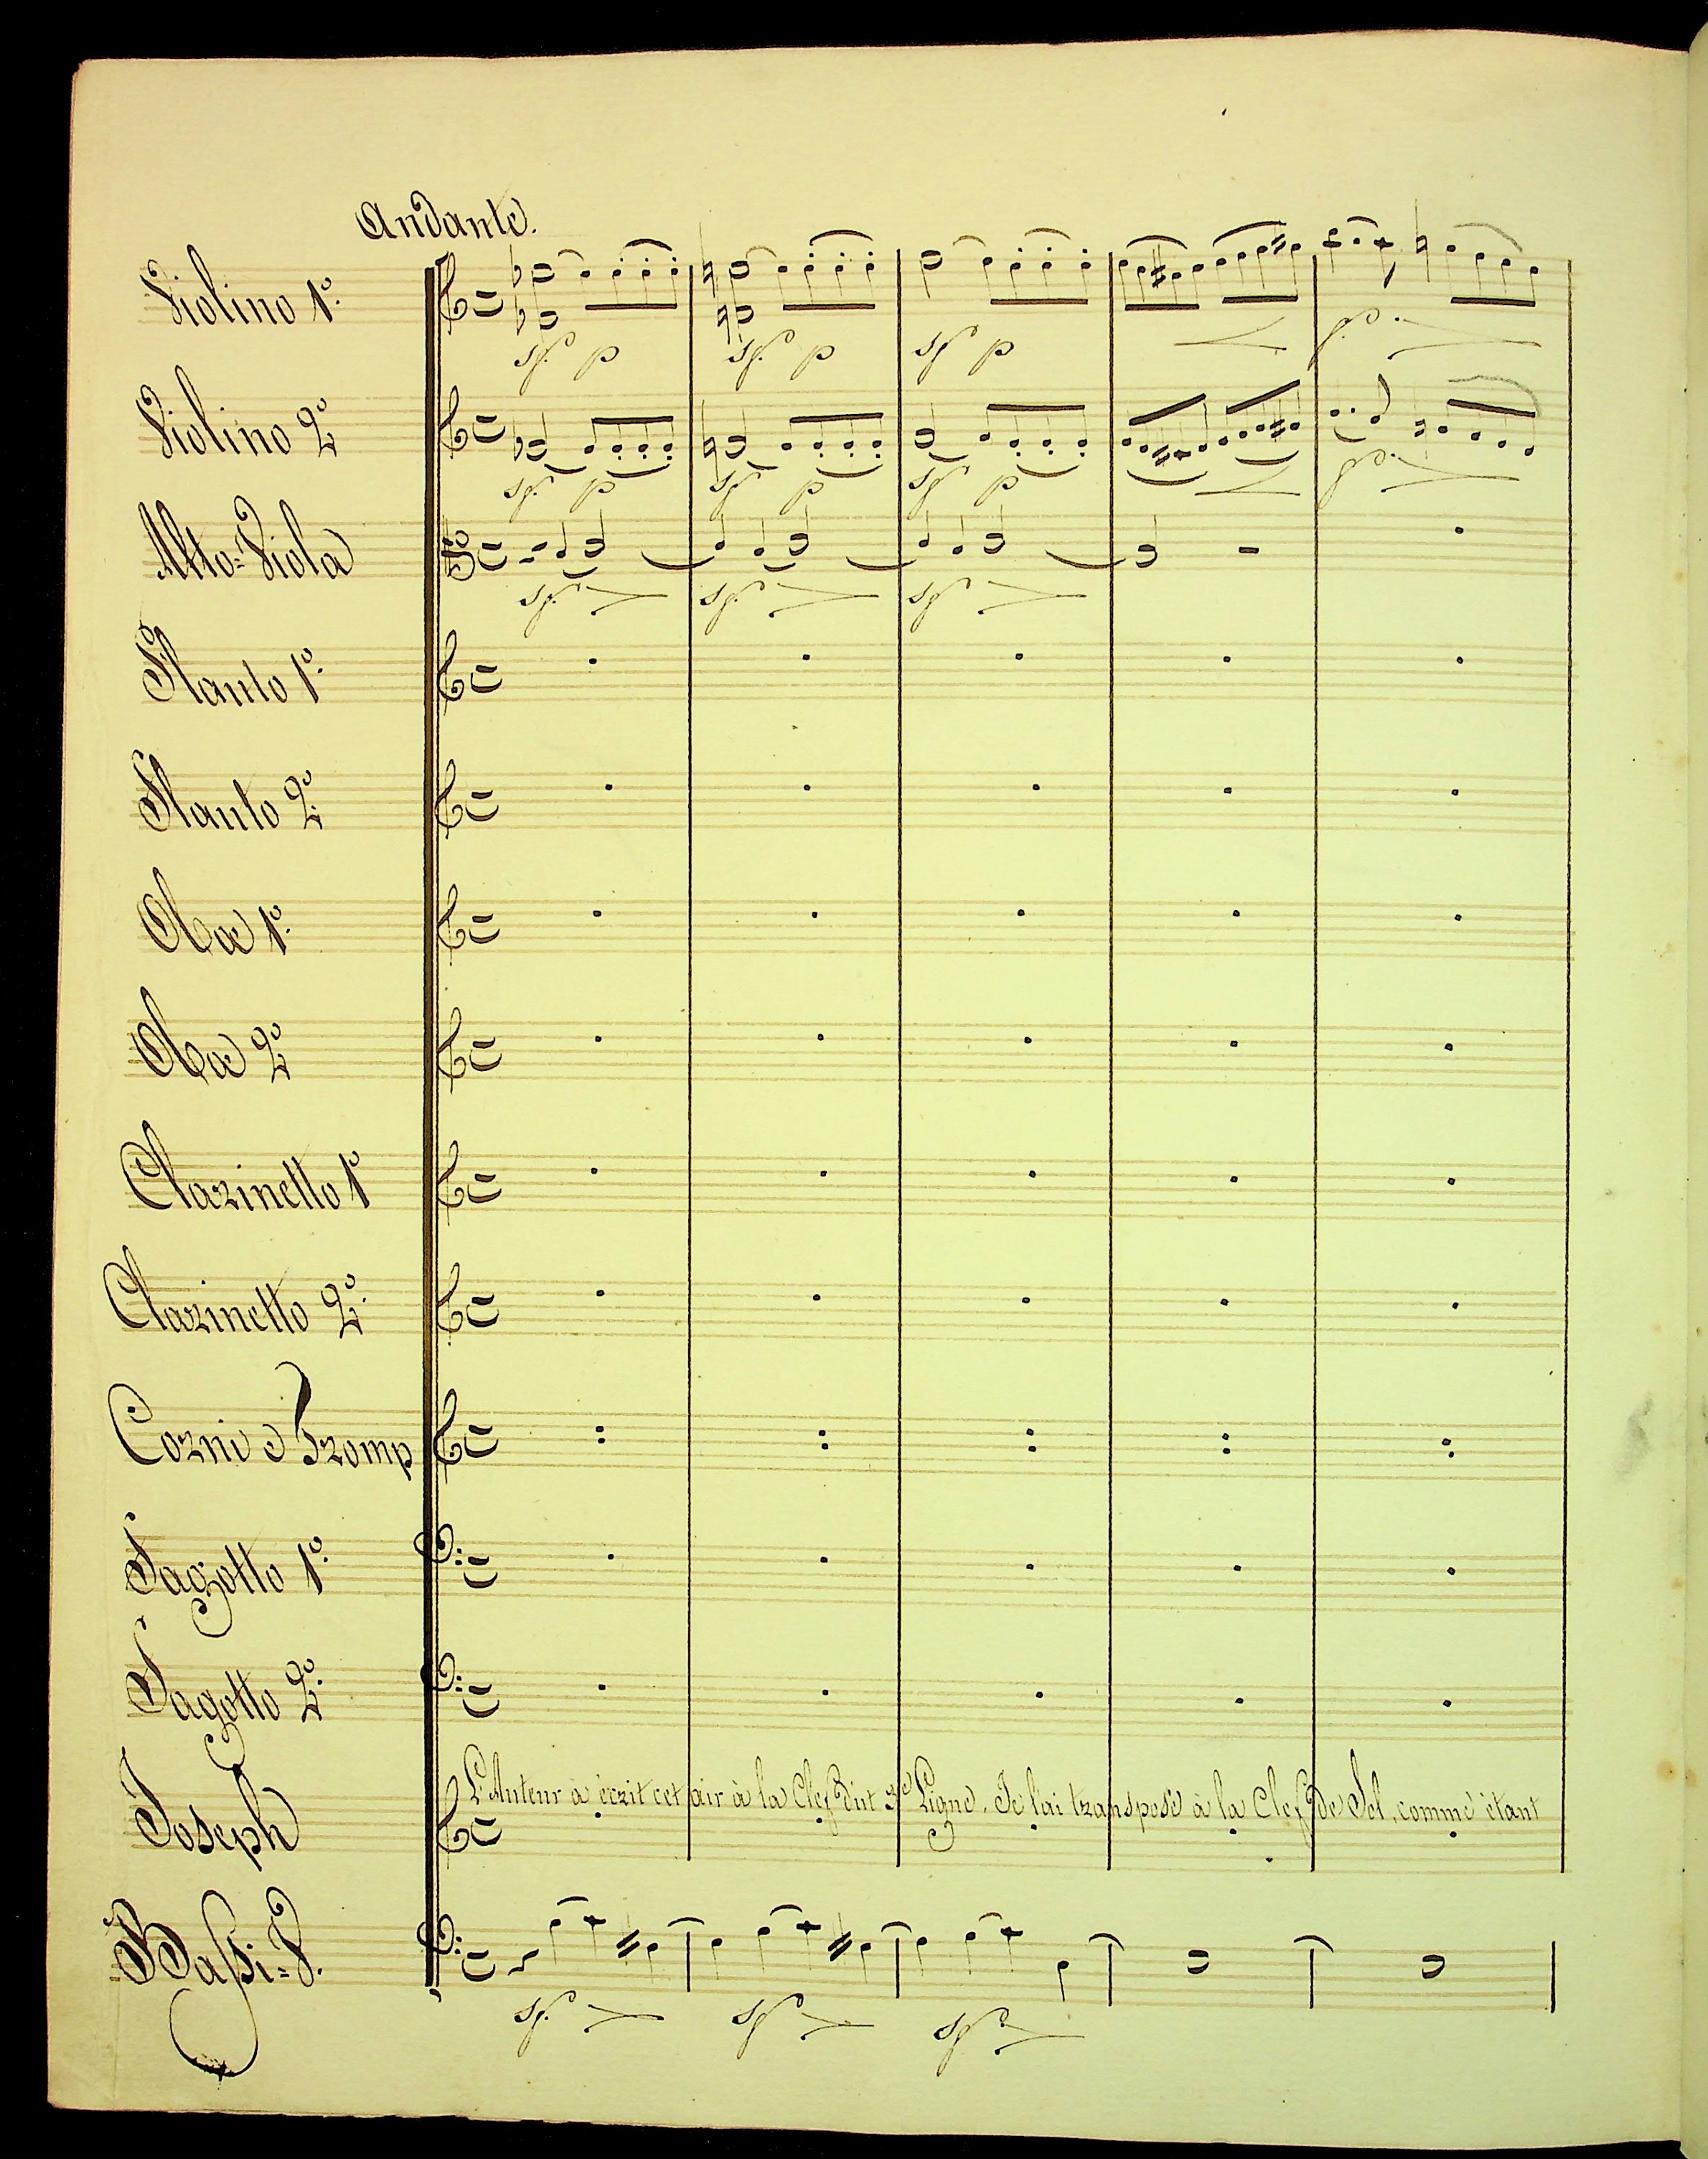 Andante.
Violino 1º.
sf. p sf. p sf p
Violino 2º
sf. p sf. p sf p
Alto=Viola
sf. sf. sf
Flauto 1º.
Flauto 2º.
Oboe 1º.
Oboe 2º
Clarinetto 1º
Clarinetto 2º.
Corni e Tromp
Fagotto 1º.
Fagotto 2º.
L'Auteur à écrit cet air à la Clef d'ut 3e Ligne. Je l'ai transposé à la Clef de Sol, comme étant
Joseph
Baſsi=V.
sf. sf sf